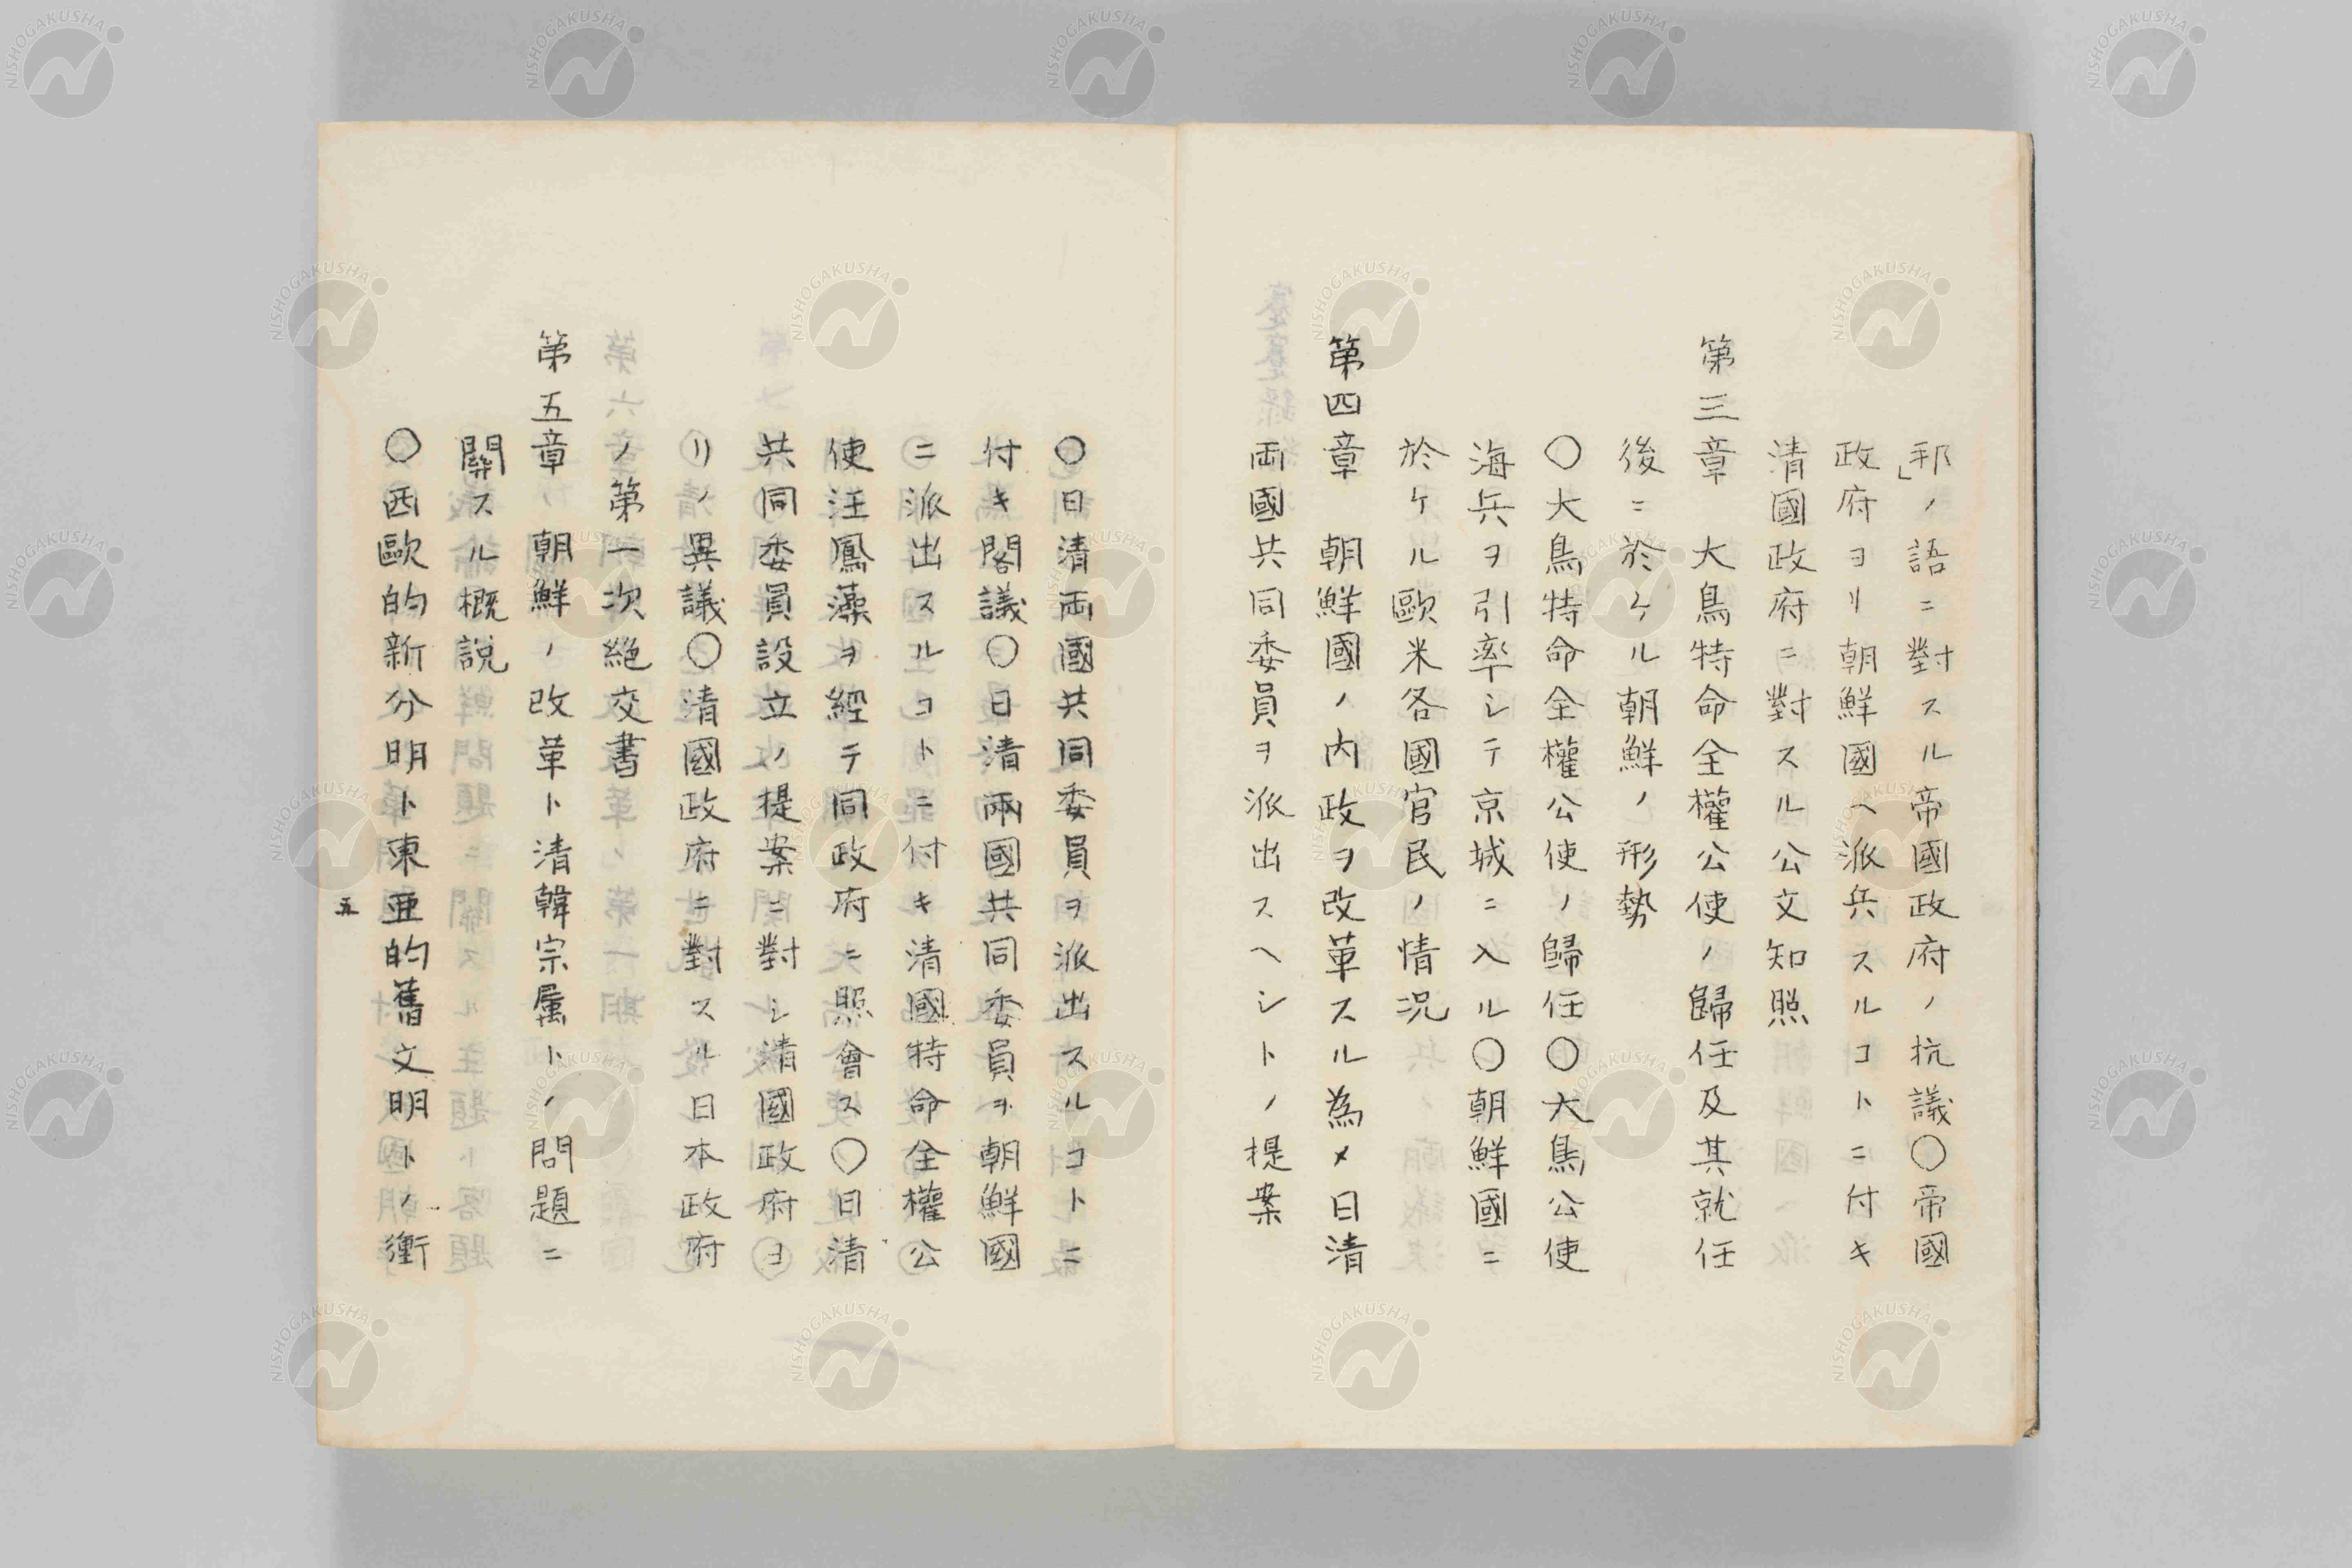 邦」ノ語ニ對スル帝國政府ノ抗議〇帝國
政府ヨリ朝鮮國ヘ派兵スルコトニ付キ
清國政府ニ對スル公文知照
第三章 大鳥特命全權公使ノ歸任及其就任
後ニ於ケル朝鮮ノ形勢
〇大鳥特命全權公使ノ歸任〇大鳥公使
海兵ヲ引率シテ京城ニ入ル〇朝鮮國ニ
於ケル歐米各國官民ノ情況
第四章 朝鮮國ノ内政ヲ改革スル為メ日清
両國共同委員ヲ派出スヘシトノ提案
〇日清両國共同委員ヲ派出スルコトニ
付キ閣議〇日清兩國共同委員ヲ朝鮮國
ニ派出スルコトニ付キ清國特命全權公
使汪鳳藻ヲ經テ同政府ニ照會ス〇日清
共同委員設立ノ提案ニ對シ清國政府ヨ
リノ異議〇清國政府ニ對スル日本政府
ノ第一次絶交書
第五章 朝鮮ノ改革ト清韓宗属トノ問題ニ
關スル概説
〇西歐的新分明ト東亜的舊文明トノ衝
五
NISHOGAKUSHA